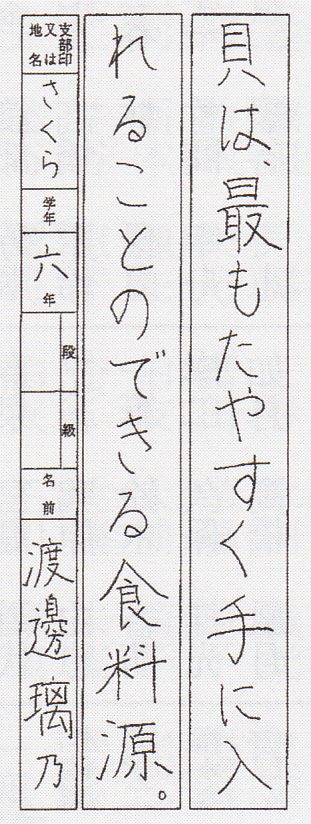 貝は、最もたやすく手に入
れることのできる食料源。
支部印又は地名 さくら 学年 六年 段 級 名前 渡邊璃乃